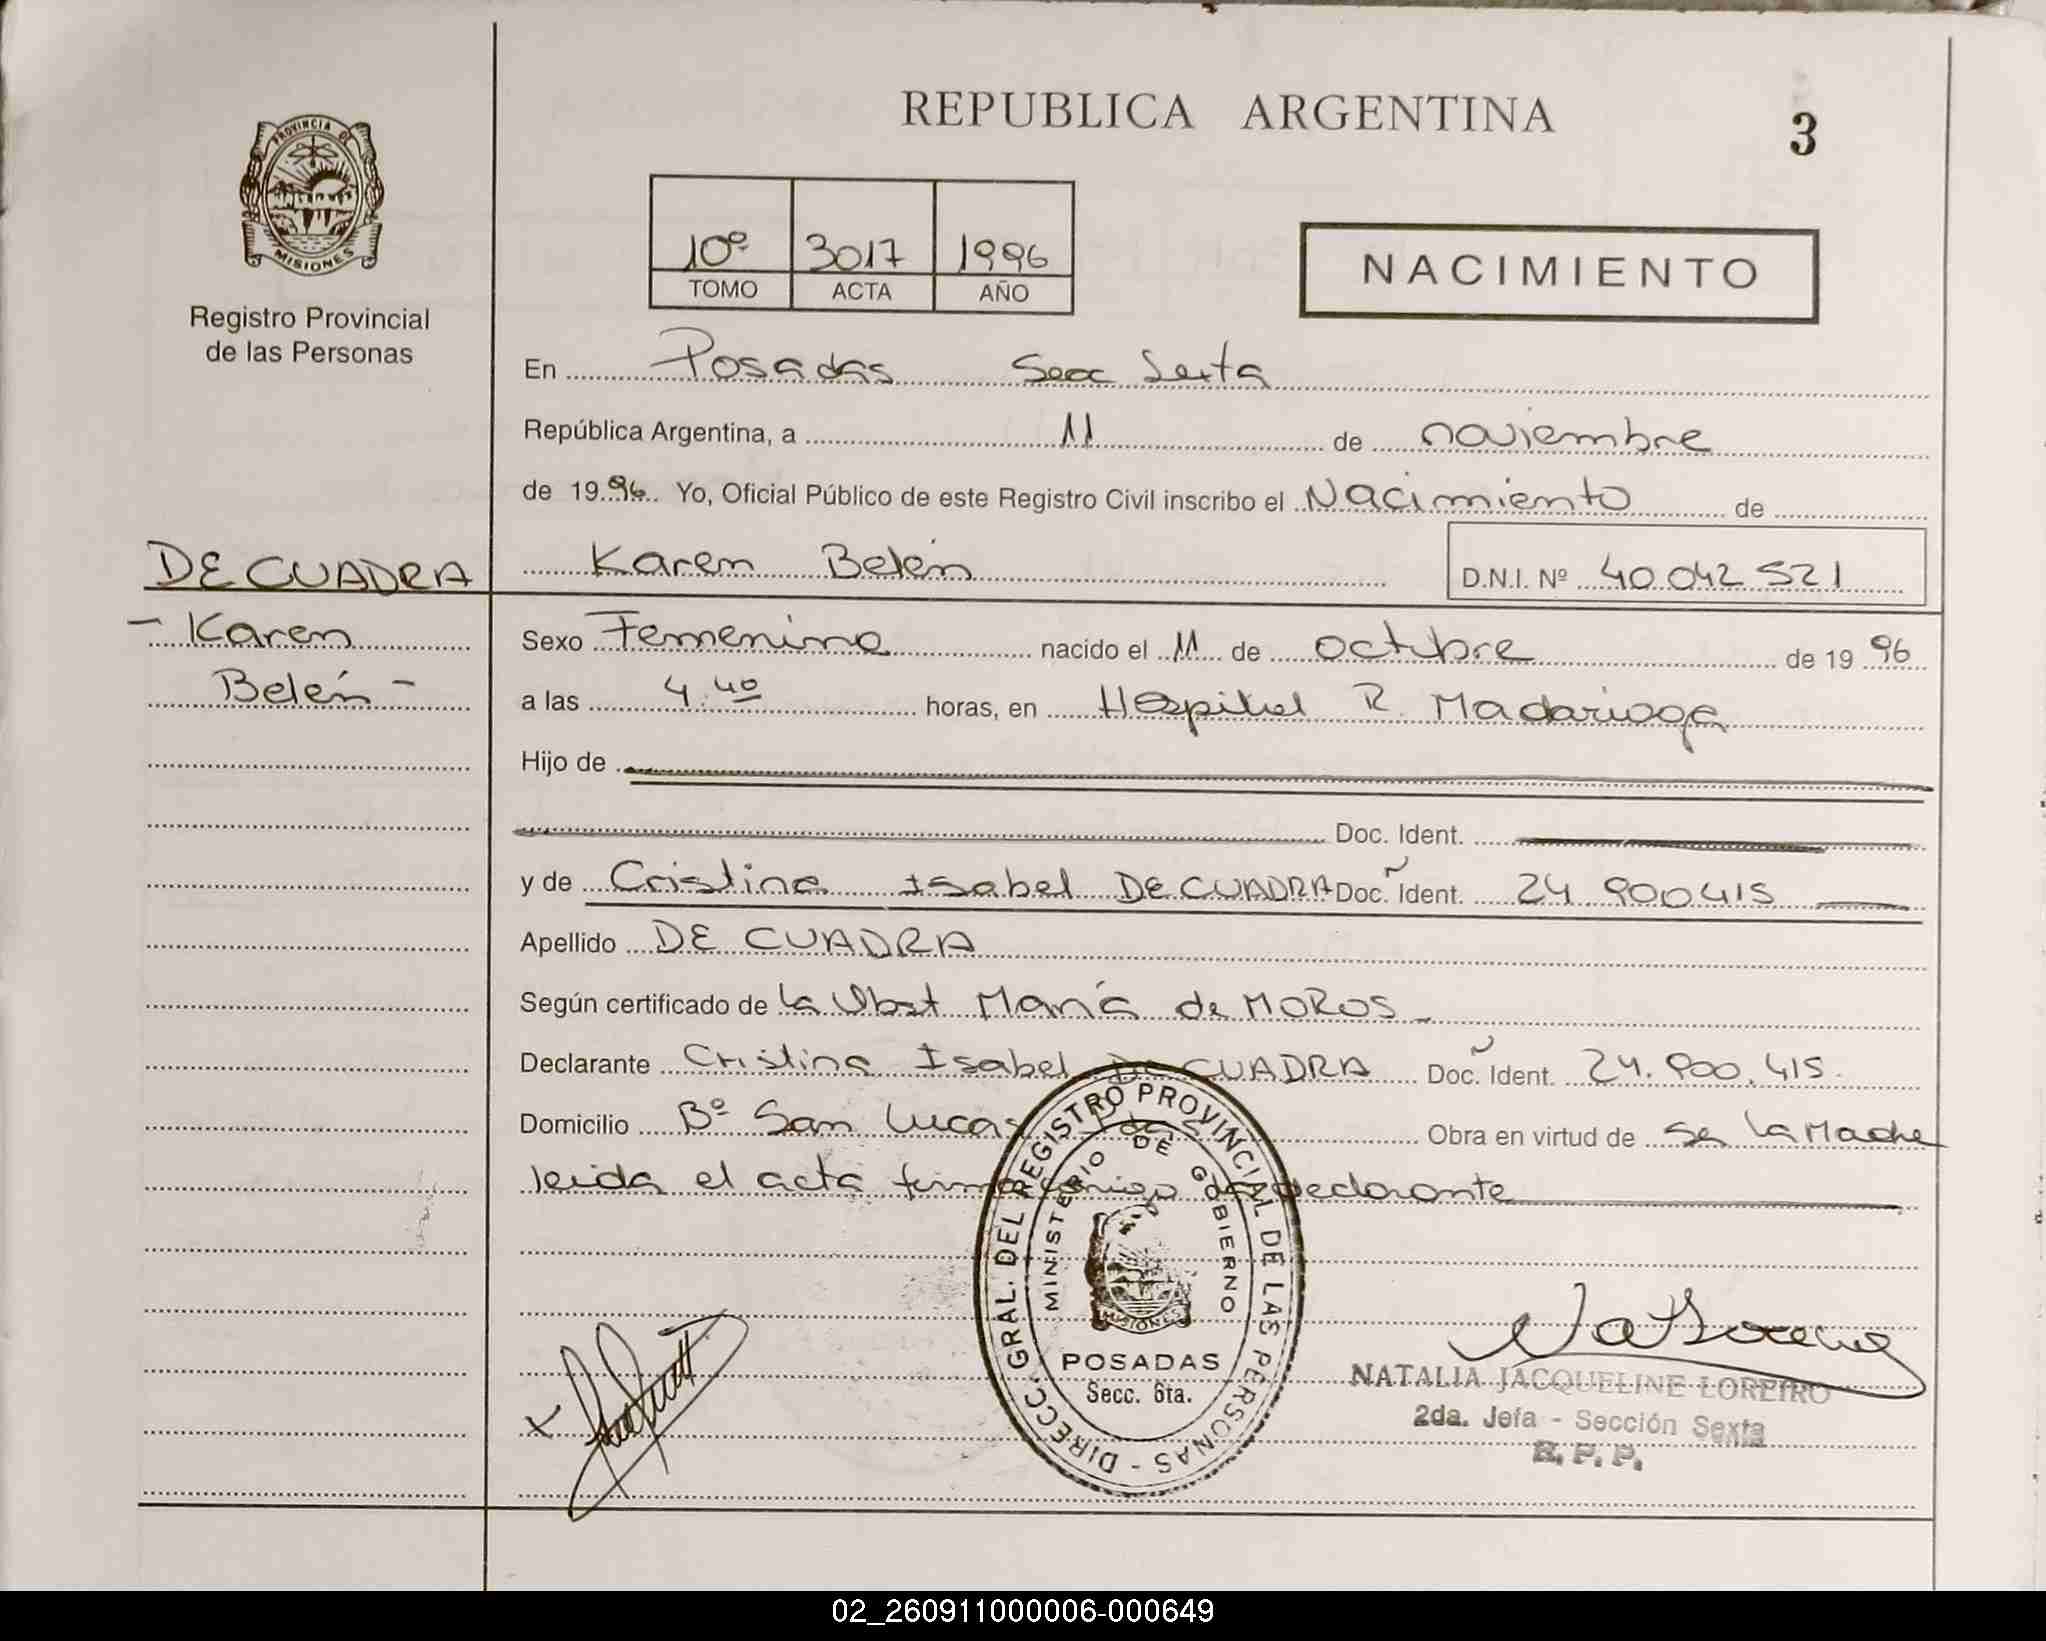 REPUBLICA ARGENTINA
3
PROVINCIA DE
MISIONES
Registro Provincial
de las Personas
10º 3017 1996
TOMO ACTA AÑO
NACIMIENTO
En Posadas Secc Sexta
República Argentina, a 11 de noviembre
de 1996 Yo, Oficial Público de este Registro Civil inscribo el Nacimiento de
DE CUADRA
Karen Belén D.N.I. Nº 40.042.521
- Karen
Belén -
Sexo Femenino nacido el 11 de octubre de 1996
a las 4.40 horas, en Hospital R. Madariaga
Hijo de
Doc. Ident.
y de Cristina Isabel DE CUADRA Doc. Ident. 24.900.415
Apellido DE CUADRA
Según certificado de la Obst María de MOROS
Declarante Cristina Isabel DE CUADRA Doc. Ident. 24.900.415.
Domicilio Bº San Lucas Pdas Obra en virtud de ser la Madre
leida el acta firma conmigo declarante
DIRECC. GRAL. DEL REGISTRO PROVINCIAL DE LAS PERSONAS -
MINISTERIO DE GOBIERNO
MISIONES
POSADAS
Secc. 6ta.
X
NATALIA JACQUELINE LOREIRO
2da. Jefa - Sección Sexta
R. P. P.
02_260911000006-000649